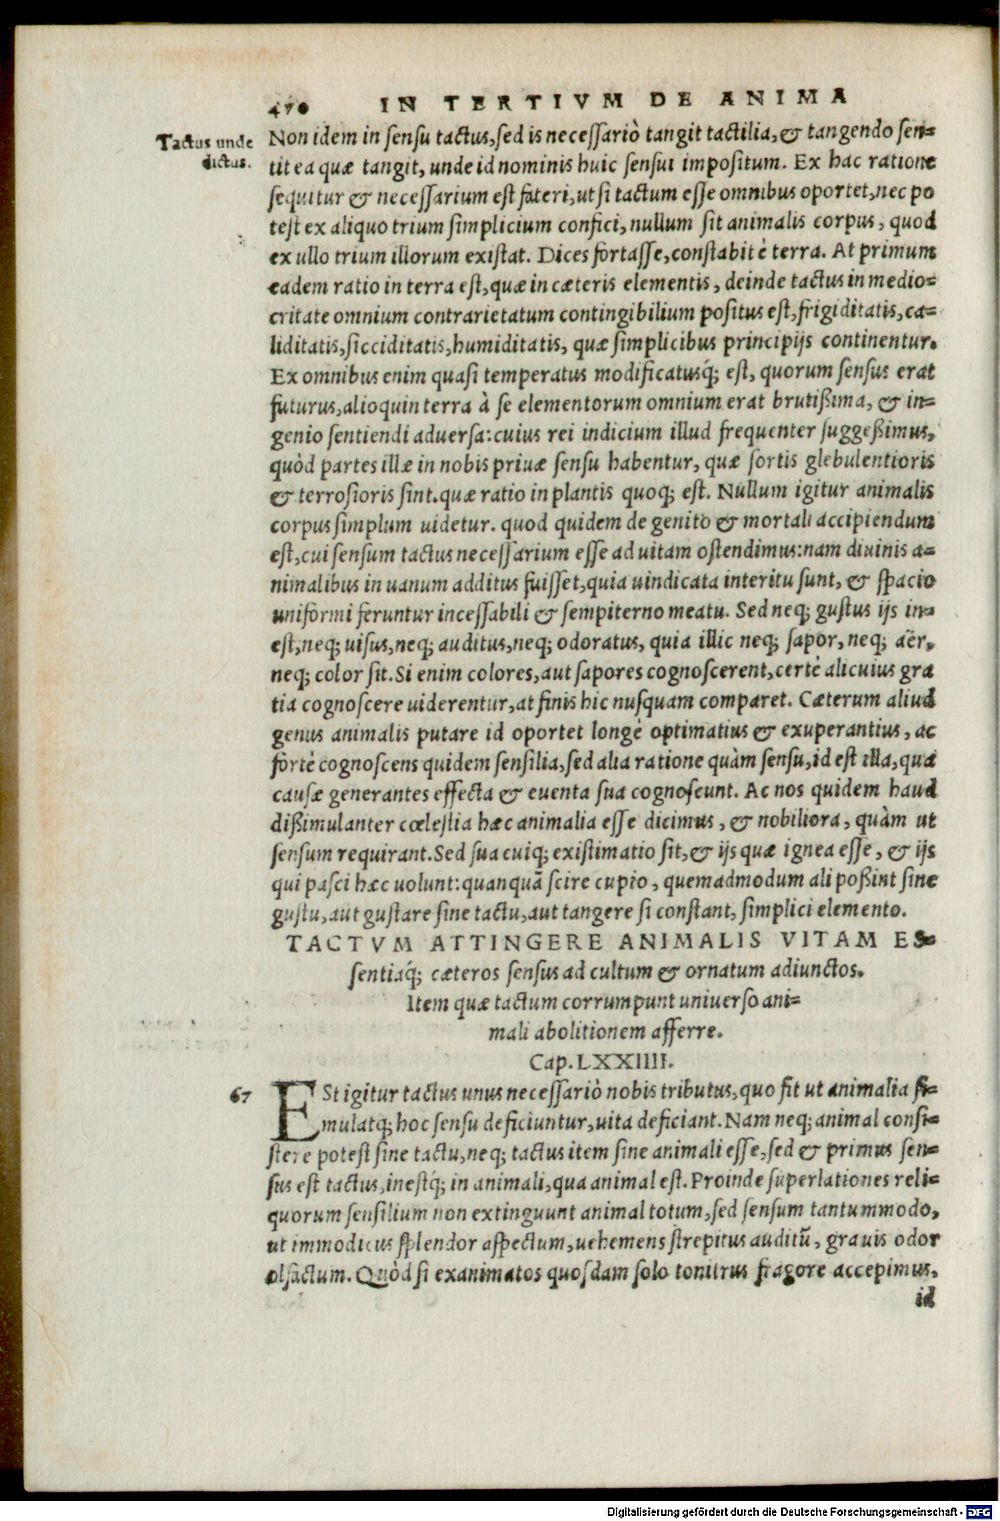 470 IN TERTIVM DE ANIMA
Tactus unde
dictus.
Non idem in sensu tactus, sed is necessariò tangit tactilia, & tangendo sen-
tit ea quæ tangit, unde id nominis huic sensui impositum. Ex hac ratione
sequitur & necessarium est fateri, ut si tactum esse omnibus oportet, nec po
test ex aliquo trium simplicium confici, nullum sit animalis corpus, quod
ex ullo trium illorum existat. Dices fortasse, constabit è terra. At primum
eadem ratio in terra est, quæ in cæteris elementis, deinde tactus in medio-
critate omnium contrarietatum contingibilium positus est, frigiditatis, ca-
liditatis, sicciditatis, humiditatis, quæ simplicibus principijs continentur.
Ex omnibus enim quasi temperatus modificatusq; est, quorum sensus erat
futurus, alioquin terra à se elementorum omnium erat brutißima, & in-
genio sentiendi aduersa: cuius rei indicium illud frequenter suggeßimus,
quòd partes illæ in nobis priuæ sensu habentur, quæ sortis glebulentioris
& terrosioris sint. quæ ratio in plantis quoq; est. Nullum igitur animalis
corpus simplum uidetur. quod quidem de genito & mortali accipiendum
est, cui sensum tactus necessarium esse ad uitam ostendimus: nam diuinis a-
nimalibus in uanum additus fuisset, quia uindicata interitu sunt, & spacio
uniformi feruntur incessabili & sempiterno meatu. Sed neq; gustus ijs in-
est, neq; uisus, neq; auditus, neq; odoratus, quia illic neq; sapor, neq; aër,
neq; color sit. Si enim colores, aut sapores cognoscerent, certè alicuius gra
tia cognoscere uiderentur, at finis hic nusquam comparet. Cæterum aliud
genus animalis putare id oportet longè optimatius & exuperantius, ac
fortè cognoscens quidem sensilia, sed alia ratione quàm sensu, id est illa, qua
causæ generantes effecta & euenta sua cognoscunt. Ac nos quidem haud
dißimulanter cœlestia hæc animalia esse dicimus, & nobiliora, quàm ut
sensum requirant. Sed sua cuiq; existimatio sit, & ijs quæ ignea esse, & ijs
qui pasci hæc uolunt: quanquã scire cupio, quemadmodum ali poßint sine
gustu, aut gustare sine tactu, aut tangere si constant, simplici elemento.
TACTVM ATTINGERE ANIMALIS VITAM ES-
sentiaq́; cæteros sensus ad cultum & ornatum adiunctos.
Item quæ tactum corrumpunt uniuerso ani-
mali abolitionem afferre.
Cap. LXXIIII.
67 ESt igitur tactus unus necessariò nobis tributus, quo fit ut animalia si-
mulatq; hoc sensu deficiuntur, uita deficiant. Nam neq; animal consi-
stere potest sine tactu, neq; tactus item sine animali esse, sed & primus sen-
sus est tactus, inestq́; in animali, qua animal est. Proinde superlationes reli-
quorum sensilium non extinguunt animal totum, sed sensum tantummodo,
ut immodicus splendor aspectum, uehemens strepitus auditũ, grauis odor
olfactum. Quòd si exanimatos quosdam solo tonitrus fragore accepimus,
id
Digitalisierung gefördert durch die Deutsche Forschungsgemeinschaft - DFG